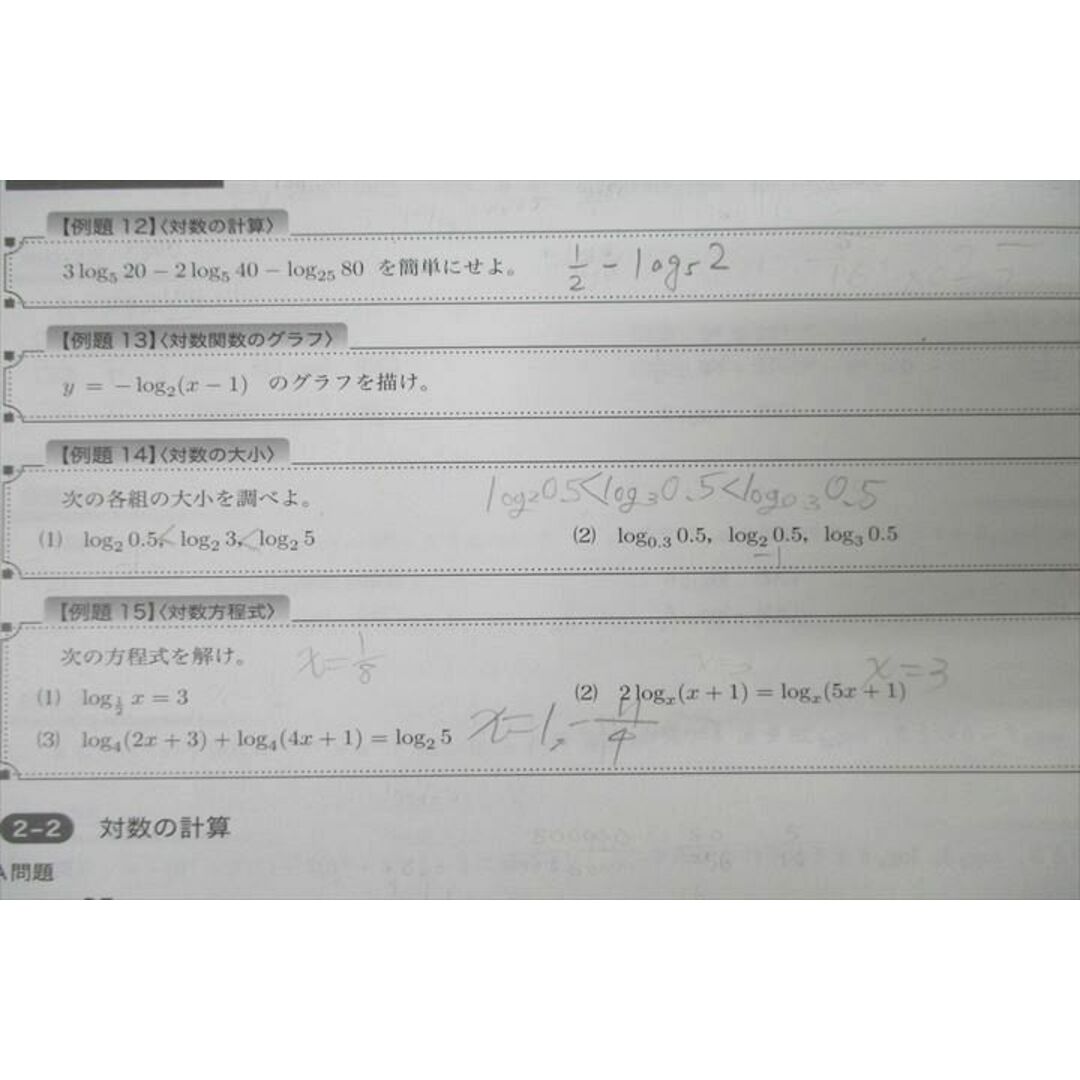 【例題 12】〈対数の計算〉
3 log₅ 20 − 2 log₅ 40 − log₂₅ 80 を簡単にせよ。 1/2 − log₅2
【例題 13】〈対数関数のグラフ〉
y = − log₂(x − 1) のグラフを描け。
【例題 14】〈対数の大小〉
次の各組の大小を調べよ。 log₂0.5<log₃0.5<log₀.₃0.5
(1) log₂ 0.5,< log₂ 3,< log₂ 5 (2) log₀.₃ 0.5, log₂ 0.5, log₃ 0.5
−1
【例題 15】〈対数方程式〉
次の方程式を解け。 x=1/8 x=3
(1) log_{1/2} x = 3 (2) 2 logₓ(x + 1) = logₓ(5x + 1)
(3) log₄(2x + 3) + log₄(4x + 1) = log₂ 5 x=1, −11/4
2-2 対数の計算
A問題